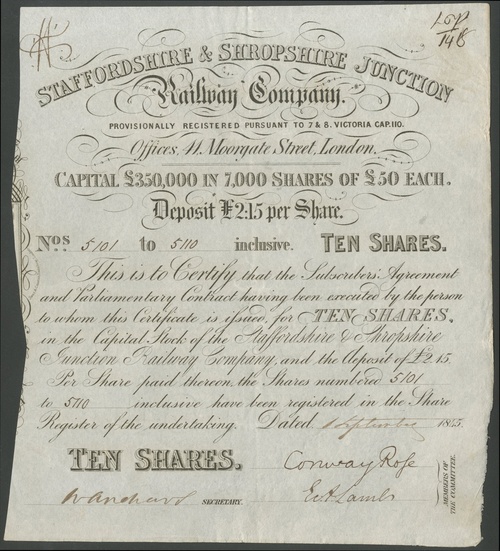 LSP
148
STAFFORDSHIRE & SHROPSHIRE JUNCTION
Railway Company.
PROVISIONALLY REGISTERED PURSUANT TO 7 & 8. VICTORIA CAP. 110.
Offices, 41. Moorgate Street, London.
CAPITAL £350,000 IN 7,000 SHARES OF £50 EACH.
Deposit £2:15 per Share.
Nos 5101 to 5110 inclusive. TEN SHARES.
This is to Certify that the Subscribers' Agreement
and Parliamentary Contract having been executed by the person
to whom this Certificate is issued, for TEN SHARES,
in the Capital Stock of the Staffordshire & Shropshire
Junction Railway Company, and the Deposit of £2.15.
Per Share paid thereon, the Shares numbered 5101
to 5110 inclusive have been registered in the Share
Register of the undertaking. Dated September 1845.
TEN SHARES. Conway Rose
SECRETARY. Lamb
MEMBERS OF
THE COMMITTEE.